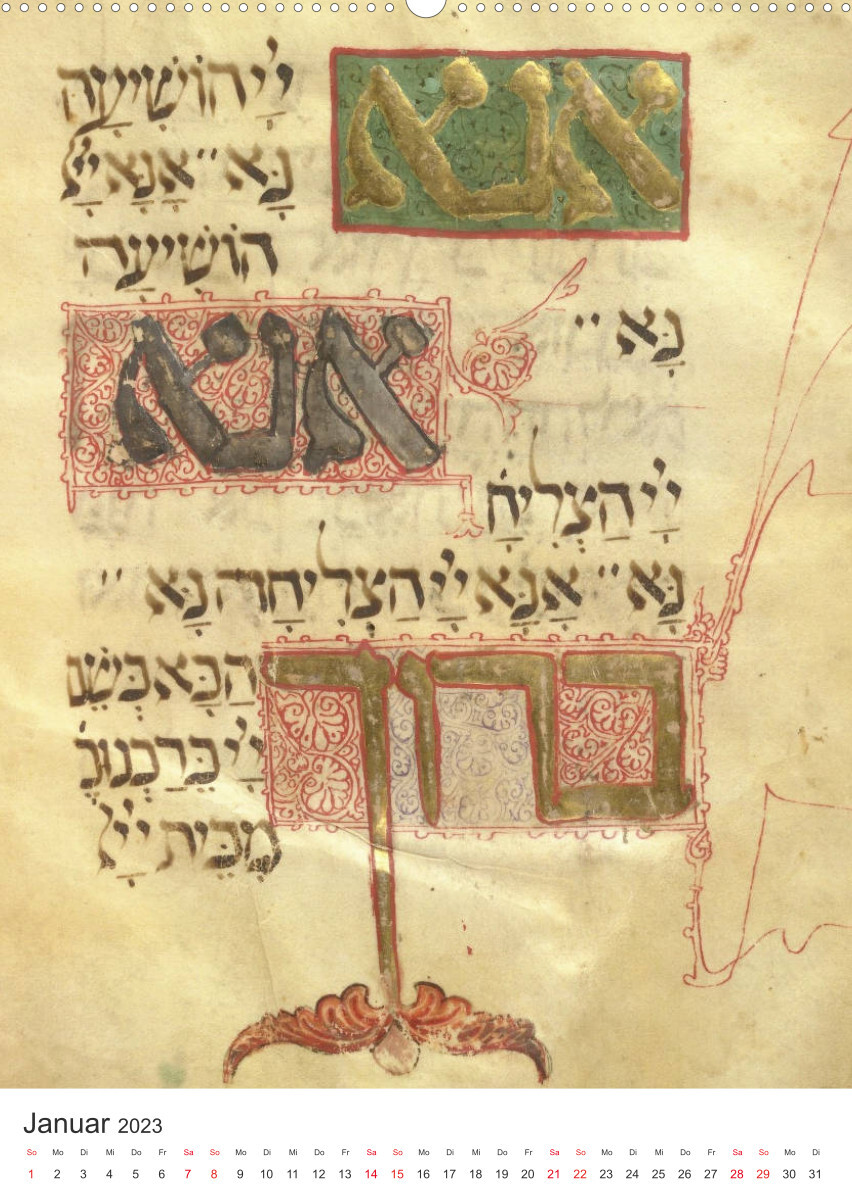 אנא
יְיָ הוֹשִׁיעָה
נָּא ״ אָנָּא יְיָ
הוֹשִׁיעָה
נָּא ״
אנא
יְיָ הַצְלִיחָ
נָּא ״ אָנָּא יְיָ הַצְלִיחָה נָּא ״
ברוך
הַבָּא בְּשֵׁם
יְיָ בֵּרַכְנוּכֶ
מִבֵּית יְיָ
Januar 2023
So Mo Di Mi Do Fr Sa So Mo Di Mi Do Fr Sa So Mo Di Mi Do Fr Sa So Mo Di Mi Do Fr Sa So Mo Di
1 2 3 4 5 6 7 8 9 10 11 12 13 14 15 16 17 18 19 20 21 22 23 24 25 26 27 28 29 30 31